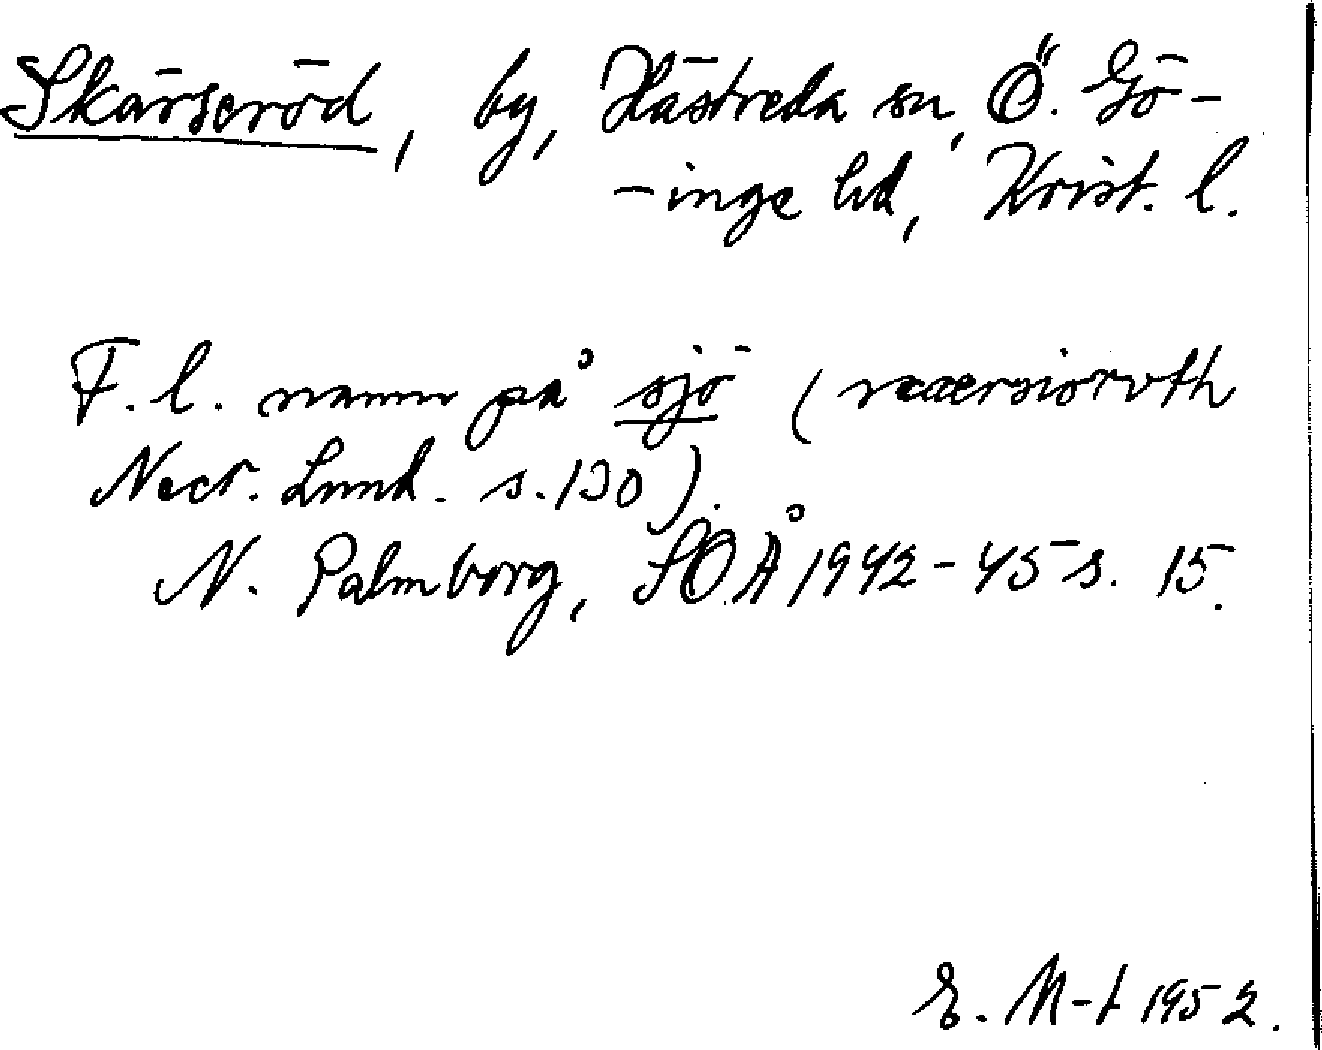 Skärseröd, by, Hästveda sn, Ö. Gö-
-inge hd, Krist. l.
F. l. namn på sjö (scærsiorvth
Necr. Lund. s. 130).
N. Palmborg, SOÅ 1942-45 s. 15.
E. M-t 1952.